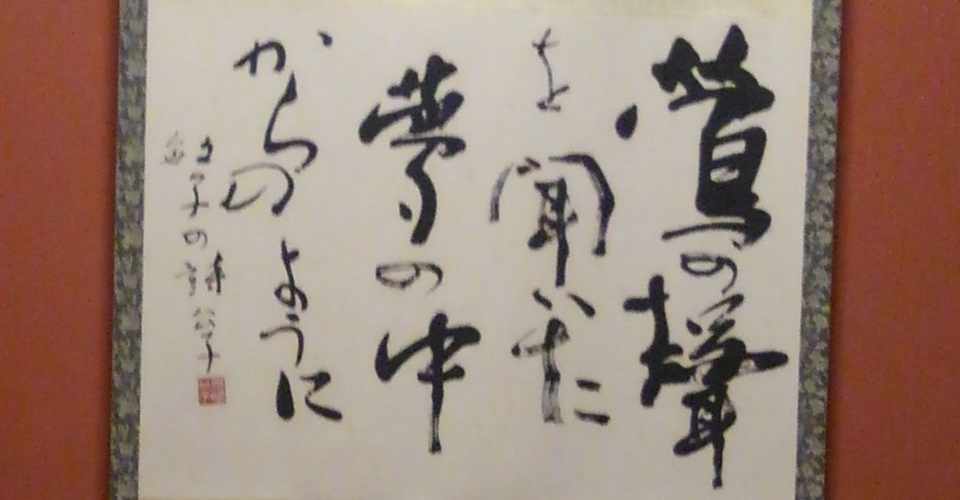 鶯の聲
を聞いた
夢の中
からのように
子の詩 公子